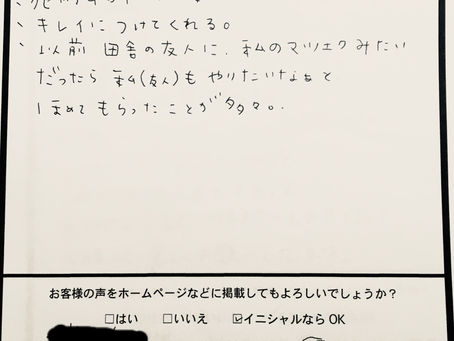 、キレイにつけてくれる。
、以前 田舎の友人に、私のマツエクみたい
だったら 私(友人)も やりたいなぁと
ほめてもらったことが多々。
お客様の声をホームページなどに掲載してもよろしいでしょうか?
□はい □いいえ ☑イニシャルなら OK